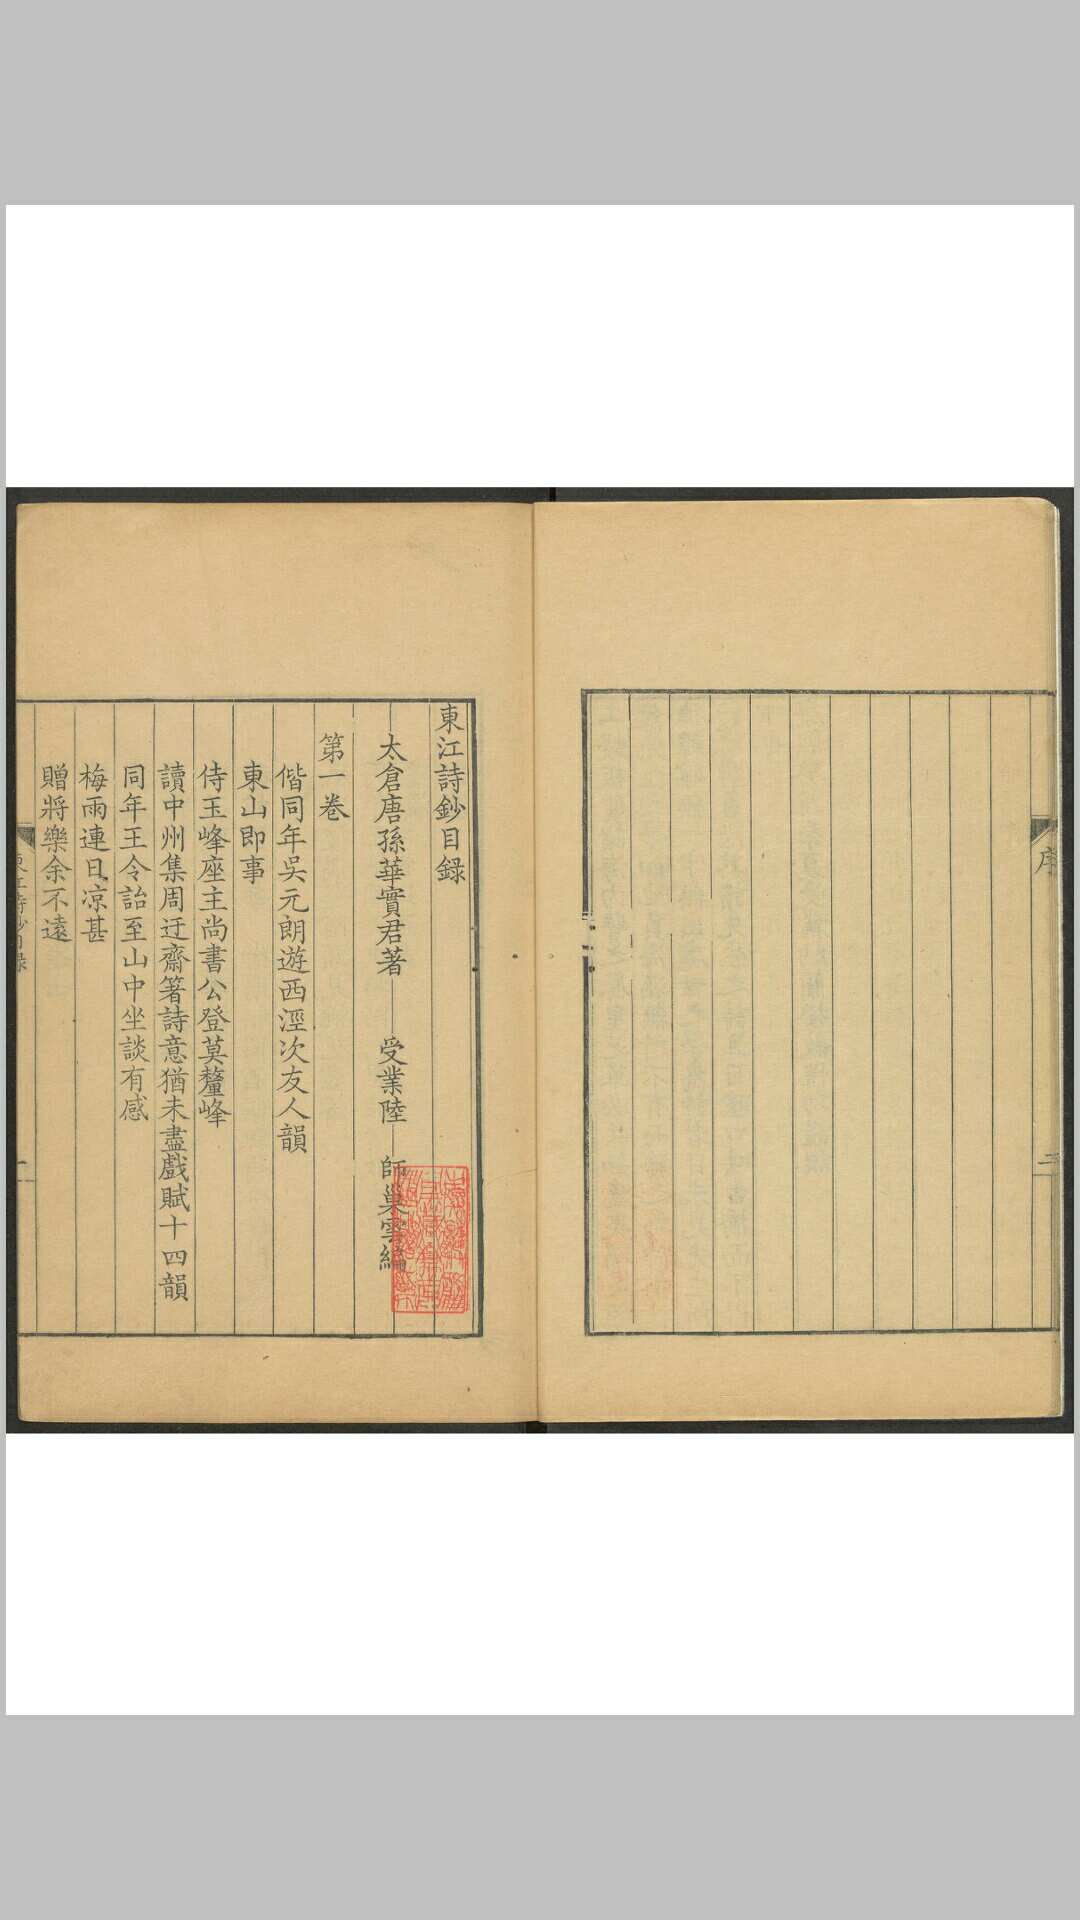 序
三
東江詩鈔目録
太倉唐孫華實君著 受業陸 師巢雲編
第一卷
偕同年吳元朗遊西涇次友人韻
東山即事
侍玉峰座主尚書公登莫釐峰
讀中州集周迂齋箸詩意猶未盡戲賦十四韻
同年王令詒至山中坐談有感
梅雨連日涼甚
贈將樂余不遠